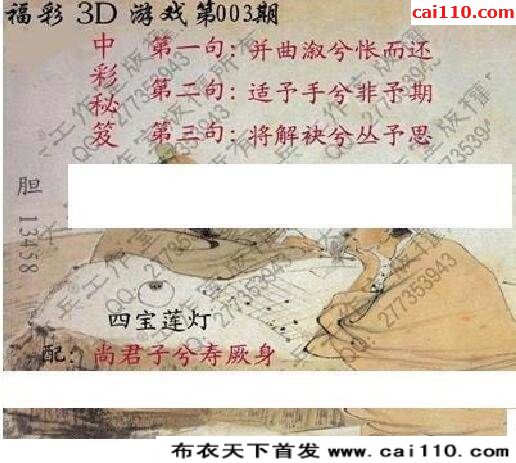 cai110.com
福彩 3D 游戏第003期
中彩秘笈
第一句：并曲溆兮怅而还
第二句：适予手兮非予期
第三句：将解袂兮丛予思
胆 13458
四宝莲灯
配：尚君子兮寿厥身
布衣天下首发 www.cai110.com